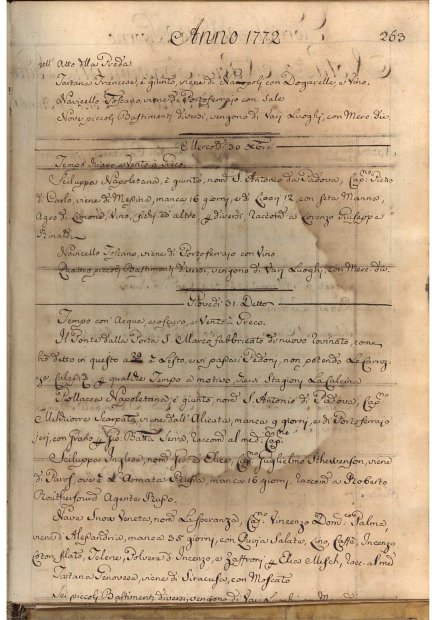 Anno 1772 263
nell' Atto della Preda
Tartana Francese, è giunto, viene di Napoli con Dogarelle, e Vino.
Navicello Toscano viene da Portoferraio con Sale
Nove piccoli Bastimenti diversi, vengono di Varj Luoghi, con Merc: div.
Mercoledì 30
Tempo e Vento à Greco.
Filuga Napoletana, è giunto, nom: S. Antonio da Padova, Cap:no
di Carlo, viene di Messina, manca 16 giorni, e di 12 con Seta, Manna,
Agro di Limone, Vino, fichi ed altro, p diversi, raccom: a Lorenzo Giuseppe
Rinaldi
Navicello Toscano, viene di Portoferraio con Vino.
Quattro piccoli Bastimenti diversi, vengono di Varj Luoghi, con Merc: div.
Giovedì 31. Detto
Tempo con Acqua, e oscuro, e Vento à Greco.
Il Ponte dalla Porta S. Marco fabbricato di nuovo come
detto in questo a 20 è e vi passa Pedoni, non potendo Le Carroz-
ze, p qualche Tempo a motivo, Stagioni La Calcina
Pollacca Napoletana, è giunto, nom: S. Antonio di Padova, Cap:no
Scarpati, viene dall' Alicata, manca 9 giorni, e di Portoferraio
Ieri, con Grano p Gio: Batta Serra, raccom: al med: Cap:no
Scialuppa Inglese, nom: Cap:no Guglielmo Stevenson, viene
di Paros, ove è L' Armata Russa, manca 16 giorni, raccom: a Roberto
Rutherfourd Agente Russo.
Nave Snow Veneta, nom: La Speranza, Cap:no Vincenzo Dom:co Palma,
viene d' Alessandria, manca 35 giorni, con Quoja Salate, Lino, Caffè, Incenzo
Coton filato, Telerie, Polvere d' Incenzo, e Zaffroni p Racc: al med
Tartana Genovese, viene di Siracusa, con Moscato
Sei piccoli Bastimenti diversi, vengono di Varj Luoghi